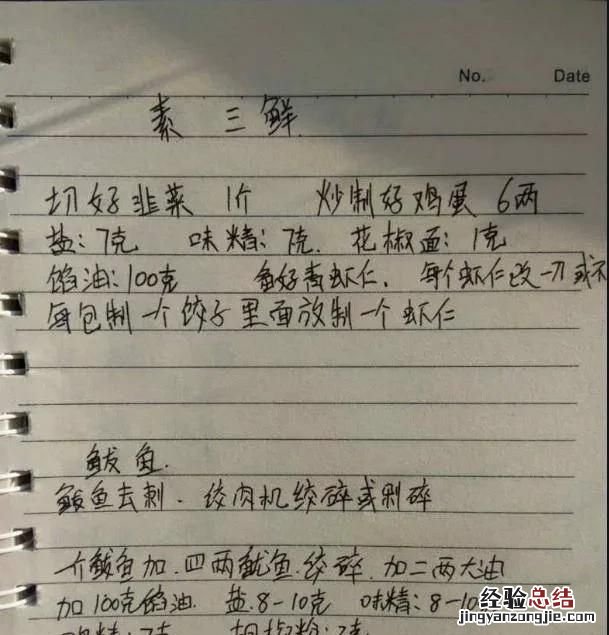 No. Date
素 三 鲜
切好韭菜 1斤 炒制好鸡蛋 6两
盐:7克 味精:7克. 花椒面:1克
馅油:100克 好青虾仁. 每个虾仁改一刀或不
每包制一个饺子里面放制一个虾仁
鲅鱼.
鲅鱼去刺. 绞肉机绞碎或剁碎
一斤鲅鱼加.四两鱿鱼.绞碎.加二两大油
加100克馅油. 盐.8-10克 味精:8-10
鸡精:7克 胡椒粉:2克
经验总结
jingyanzongjie.com